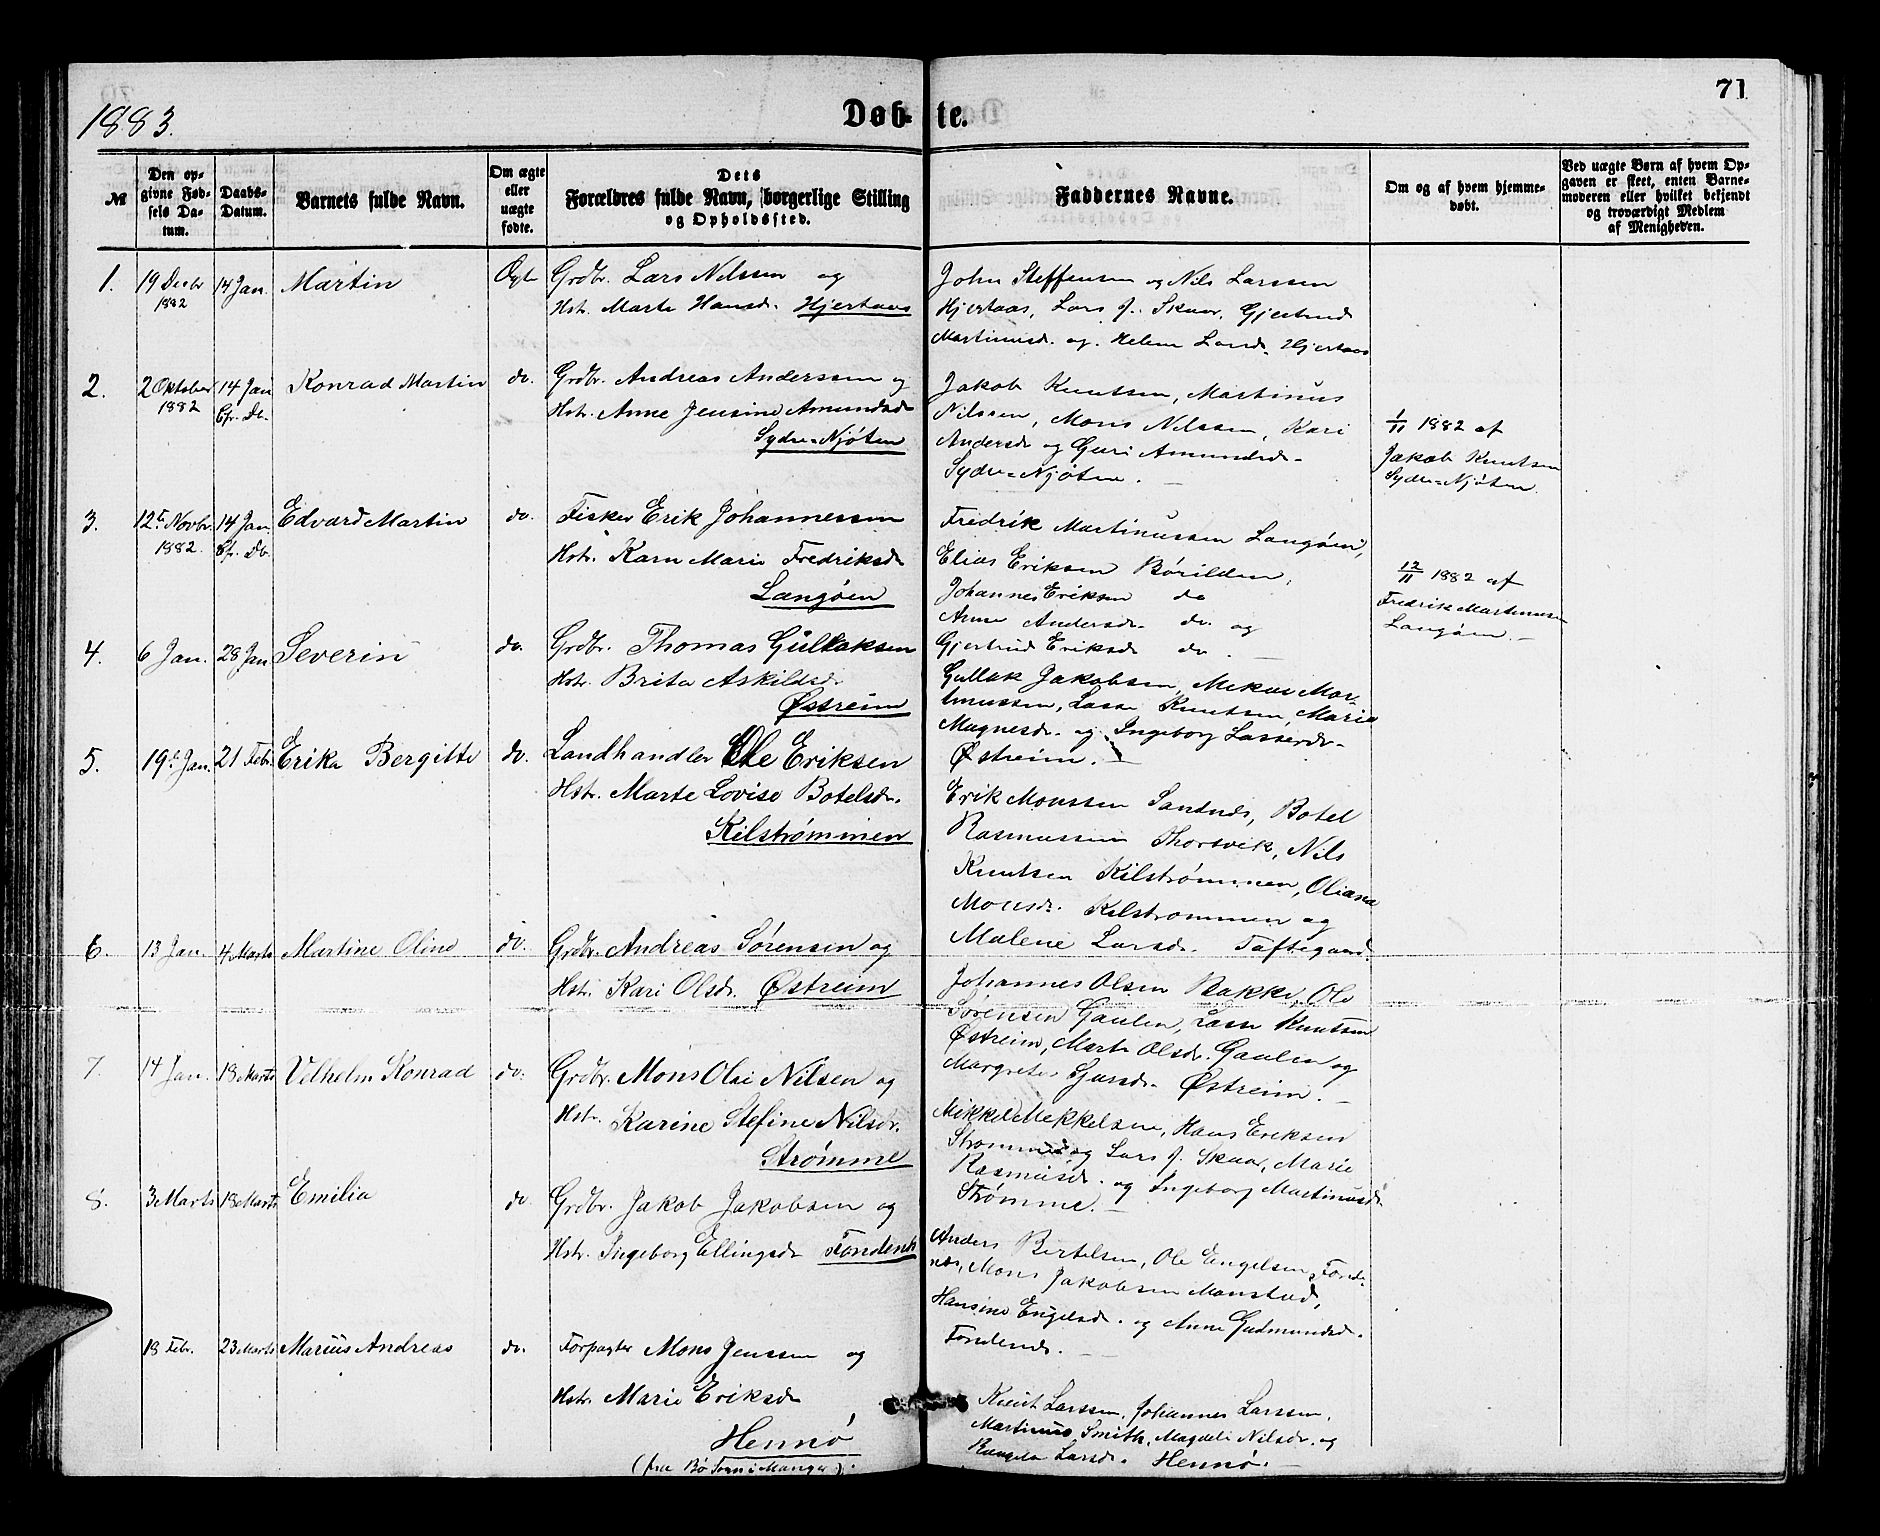 71
1883.
Døbte.
№
Den opgivne Fødsels Datum.
Daabs-Datum.
Barnets fulde Navn.
Om ægte eller uægte fødte.
Dets Forældres fulde Navn, borgerlige Stilling og Opholdssted.
Faddernes Navne.
Om og af hvem hjemmedøbt.
Ved uægte Børn af hvem Opgaven er skeet, enten Barnemoderen eller hvilket bekjendt og troværdigt Medlem af Menigheden.
1. 19 Decbr 1882 14 Jan. Martin Ægte
Grdbr. Lars Nilssen og
Hst. Marte Hansd. Hjertaas
John Steffensen og Nils Larssen
Hjertaas, Lars J. Skaar, Gjertrud
Martinusd. og Helene Larsd. Hjertaas
2. 2 Oktober 1882 14 Jan Bfr. Db. Konrad Martin do.
Grdbr. Andreas Anderssen og
Hst. Anne Jensine Amundsd
Sydre-Njøten
Jakob Knutsen, Martinus
Nilssen, Mons Nilssen, Kari
Andersd og Guri Amundsd.
Sydre-Njøten.
1/11 1882 af
Jakob Knutsen
Sydre-Njøten.
3. 12t Novbr. 1882. 14 Jan. Bfr. Db. Edvard Martin do.
Fisker Erik Johannessen
Hstr. Karn Marie Fredriksd
Langøen
Fredrik Martinussen Langøen,
Elias Eriksen Børilden,
Johannes Eriksen do
Anne Andersd. do. og
Gjertrud Eriksd do.
12/11 1882 af
Fredrik Martinussen
Langøen.
4. 6 Jan. 28 Jan Severin do.
Grdbr. Thomas Gullaksen
Hstr. Brita Askildsd.
Østreim
Gullak Jakobsen, Mekal Mar-
tinussen, Lasse Knutsen, Maria
Magnesd. og Ingeborg Lassesd.
Østreim.
5. 19t Jan. 21 Febr. Erika Bergitte do.
Landhandler Ole Eriksen
Hstr. Marte Lovise Botelsd.
Kilstrømmen
Erik Monssen Santnes, Botel
Rasmussen Thorsvik, Nils
Knutsen Kilstrømmen, Oliana
Monsd. Kilstrømmen og
Malene Larsd. Toftegaard.
6. 13 Jan. 4 Marts Martine Oline do.
Grdbr. Andreas Sørensen og
Hst. Kari Olsd. Østreim
Johannes Olsen Bakke, Ole
Sørensen Gaulen, Lasse Knutsen
Østreim, Marte Olsd. Gaulen og
Margrete Sjursd. Østreim.
7. 14 Jan. 18 Marts Velhelm Konrad do.
Grdbr. Mons Olai Nilsen og
Hst. Karine Stefine Nilsd.
Strømme
Mikkel Mekkelsen, Hans Eriksen
Strømme og Lars J. Skaar, Marie
Rasmusd. og Ingeborg Martinusd.
Strømme.
8. 3 Marts 18 Marts Emilia do.
Grdbr. Jakob Jakobsen og
Hst. Ingeborg Ellingsd Fondenes
Anders Bertelsen, Ole Engelsen, Fonde-
nes, Mons Jakobsen Monstad,
Hansine Engelsd. og Anne Gudmundsd.
Fondenes.
18 Febr. 23 Marts Marius Andreas do.
Forpagter Mons Jenssen og
Hst. Marie Eriksd
Hennø
(fra Bø Sogn i Manger).
Knut Larssen, Johannes Larssen,
Martinus Smith, Magdeli Nilsd. og
Larsd. Hennø.